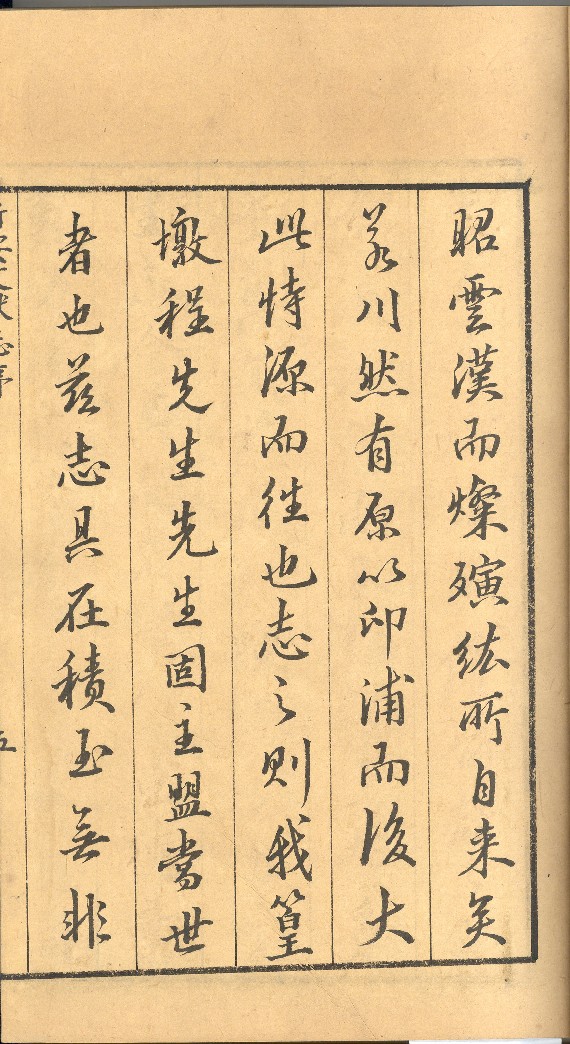 昭雲漢而燦殥紘所自来矣
若川然有原以卬浦而後大
此恃源而往也志之則我篁
墩程先生先生固主盟當世
者也兹志具在積玉無非